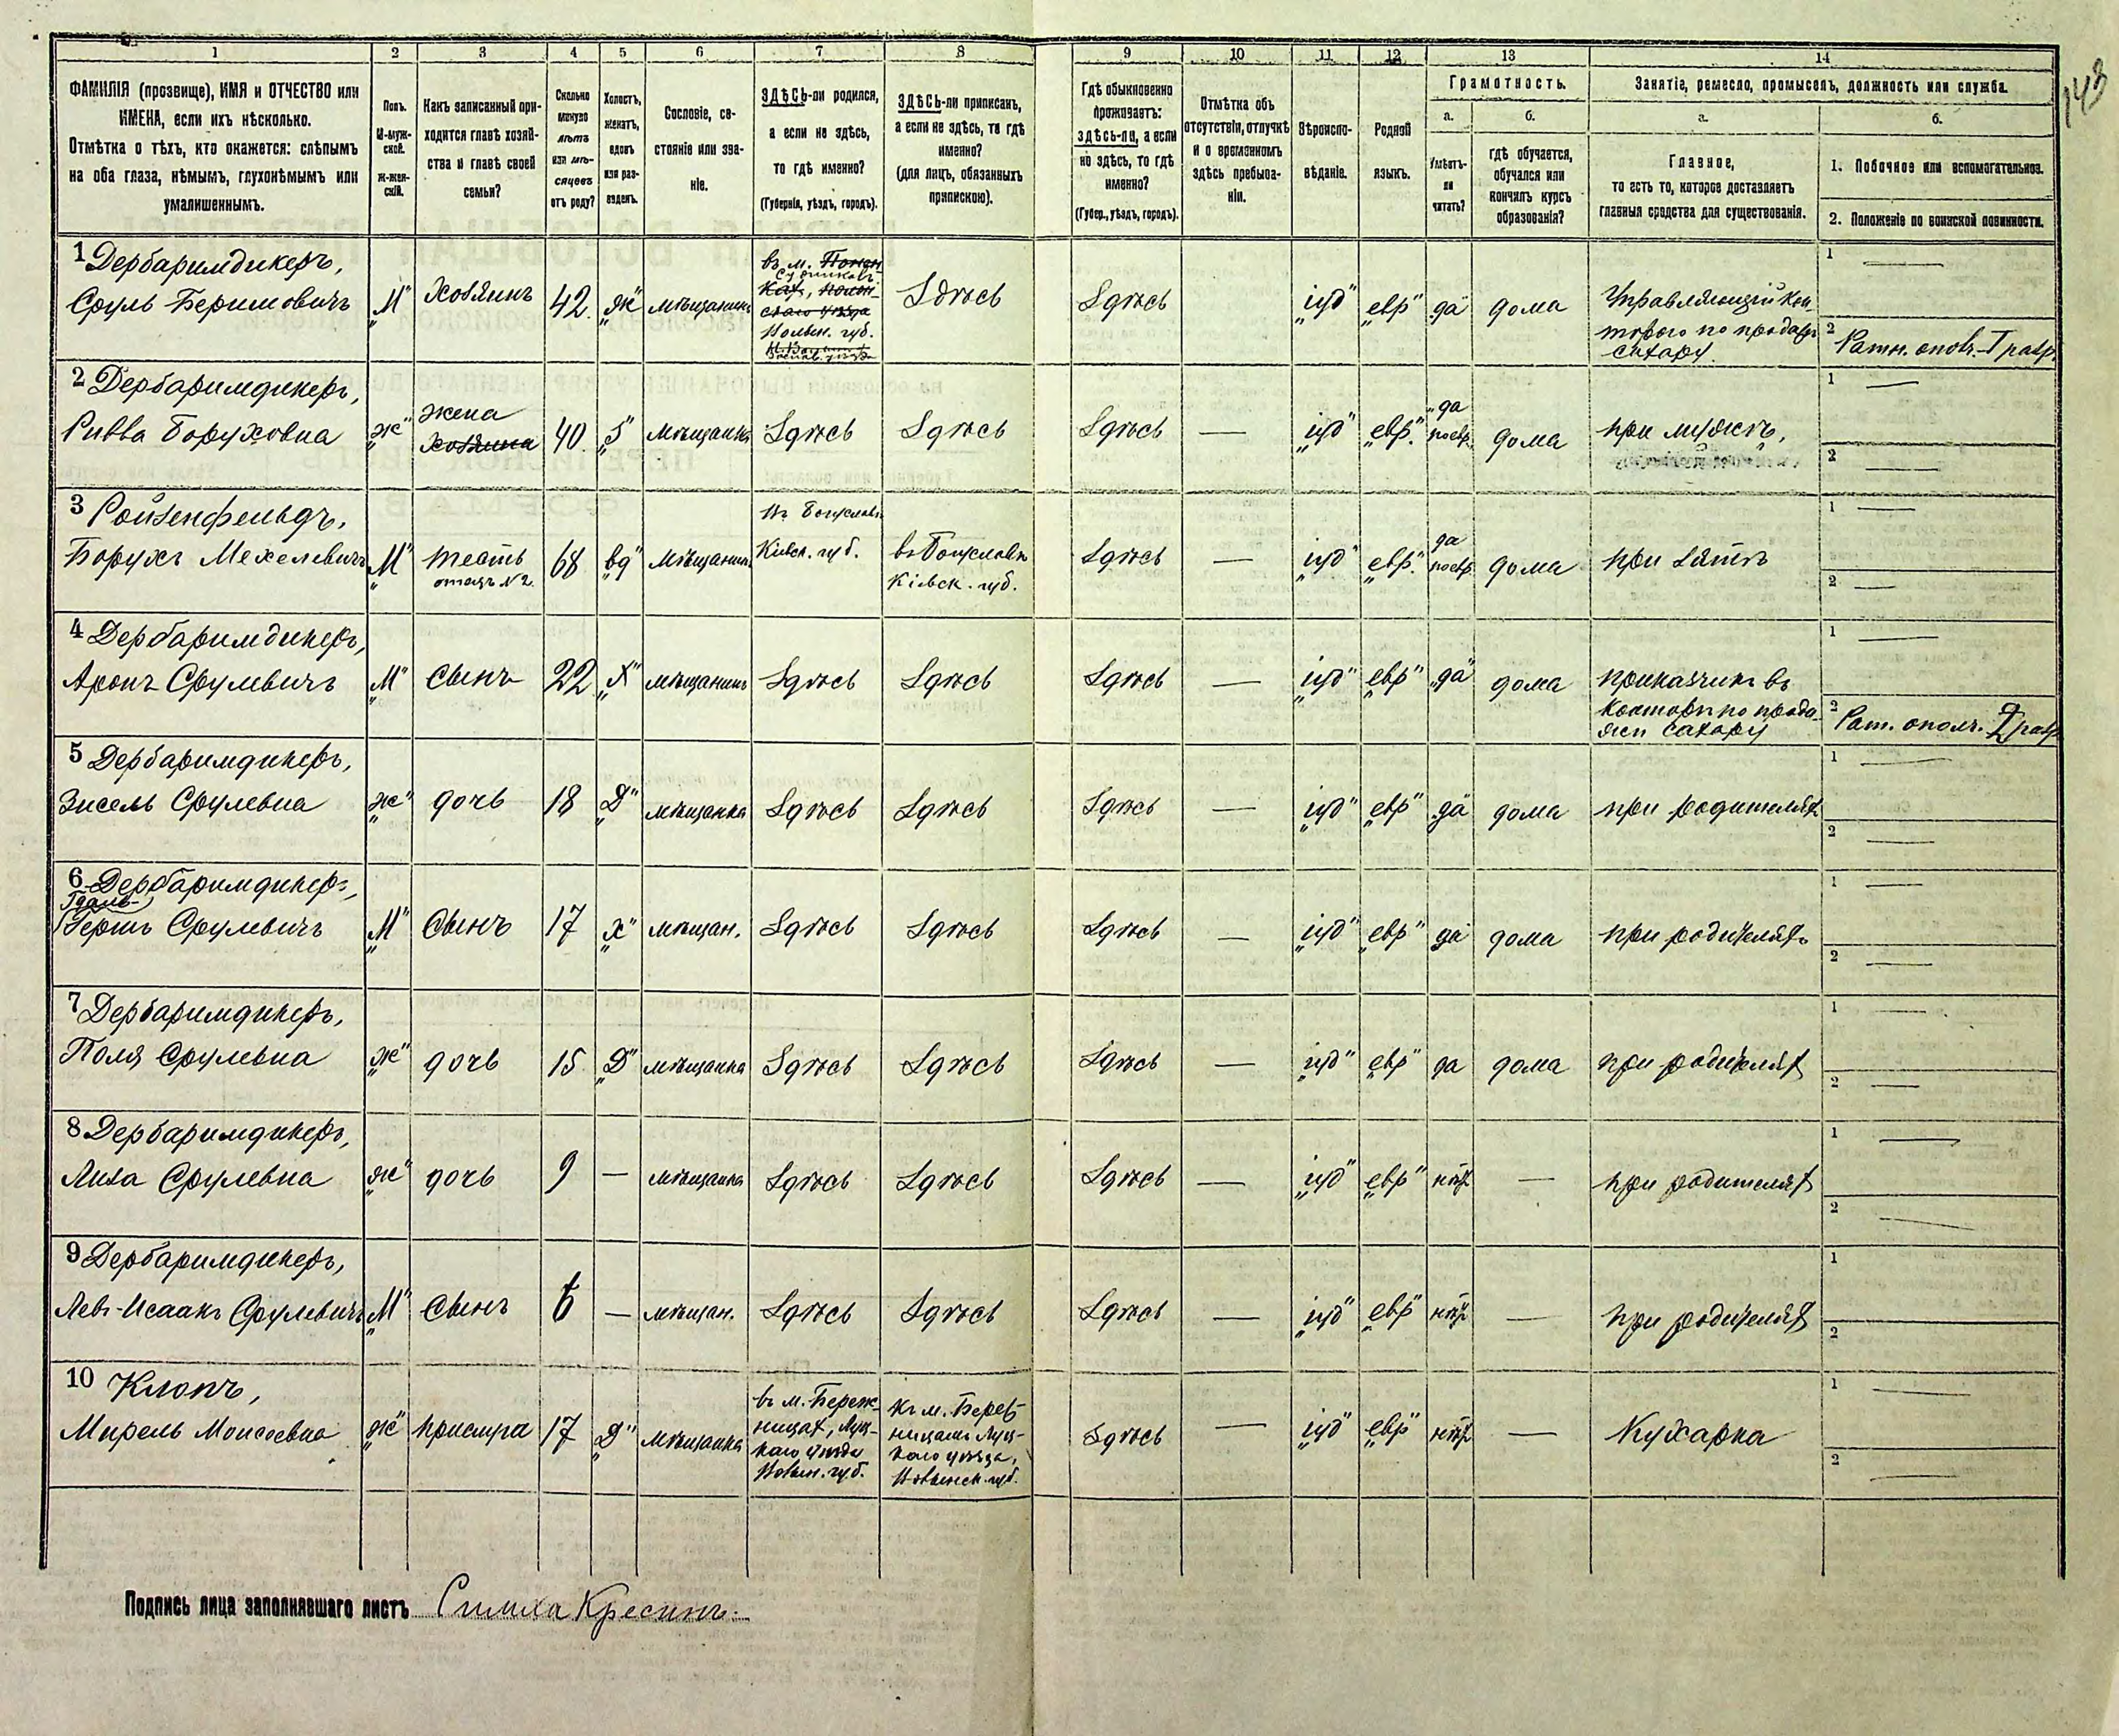 143
1
2
3
4
5
6
7
8
9
10
11
12
13
14
ФАМИЛІЯ (прозвище), ИМЯ и ОТЧЕСТВО или
ИМЕНА, если ихъ нѣсколько.
Отмѣтка о тѣхъ, кто окажется: слѣпымъ
на оба глаза, нѣмымъ, глухонѣмымъ или
умалишеннымъ.
Полъ.
М-муж-
ской.
Ж-жен-
скій.
Какъ записанный при-
ходится главѣ хозяй-
ства и главѣ своей
семьи?
Сколько
минуло
лѣтъ
или мѣ-
сяцевъ
отъ роду?
Холостъ,
женатъ,
вдовъ
или раз-
веденъ.
Сословіе, со-
стояніе или зва-
ніе.
ЗДѢСЬ-ли родился,
а если не здѣсь,
то гдѣ именно?
(Губернія, уѣздъ, городъ).
ЗДѢСЬ-ли приписанъ,
а если не здѣсь, то гдѣ
именно?
(для лицъ, обязанныхъ
припискою).
Гдѣ обыкновенно
проживаетъ:
здѣсь-ли, а если
не здѣсь, то гдѣ
именно?
(Губер., уѣздъ, городъ).
Отмѣтка объ
отсутствіи, отлучкѣ
и о временномъ
здѣсь пребыва-
ніи.
Вѣроиспо-
вѣданіе.
Родной
языкъ.
Грамотность.
а.
Умѣетъ-
ли
читать?
б.
гдѣ обучается,
обучался или
кончилъ курсъ
образованія?
Занятіе, ремесло, промыселъ, должность или служба.
а.
Главное,
то есть то, которое доставляетъ
главныя средства для существованія.
б.
1. Побочное или вспомогательное.
2. Положеніе по воинской повинности.
1 Дербаримдикеръ,
Сруль Беримовичъ
"М"
Хозяинъ
42.
"ж"
мѣщанинъ
въ м.
Волын. губ.
Здѣсь
Здѣсь
"іуд"
"евр"
да
дома
Управляющій кон-
торою по продажѣ
сахару.
1 —
2 Ратн. опол. I разр.
2 Дербаримдикеръ,
Ривва Боруховна
"ж"
жена
хозяина
40.
"З"
мѣщанка
Здѣсь
Здѣсь
Здѣсь
—
"іуд"
"евр."
"да
поевр.
дома
при мужѣ,
1 —
2 —
3 Ройзенфельдъ,
Борухъ Мехелевичъ
"М"
тесть
отецъ №2.
68
"вд"
мѣщанинъ
Въ Богуславѣ
Кіевск. губ.
въ Богуславѣ
Кіевск. губ.
Здѣсь
—
"іуд"
"евр."
да
поевр.
дома
при зятѣ
1 —
2 —
4 Дербаримдикеръ,
Аронъ Срулевичъ
"М"
сынъ
22
"Х"
мѣщанинъ
Здѣсь
Здѣсь
Здѣсь
—
"іуд"
"евр"
"да"
дома
приказчикъ въ
конторѣ по прода-
жѣ сахару
1 —
2 Рат. опол. 2 разр.
5 Дербаримдикеръ,
Зисель Срулевна
"ж"
дочь
18
"Д"
мѣщанка
Здѣсь
Здѣсь
Здѣсь
—
"іуд"
"евр"
"да"
дома
при родителяхъ
1 —
2 —
6 Дербаримдикеръ,
Гдаль-
Гершъ Срулевичъ
"М"
сынъ
17
"х"
мѣщан.
Здѣсь
Здѣсь
Здѣсь
—
"іуд"
"евр"
да
дома
при родителяхъ
1 —
2 —
7 Дербаримдикеръ,
Поля Срулевна
"ж"
дочь
15
"Д"
мѣщанка
Здѣсь
Здѣсь
Здѣсь
—
"іуд"
"евр"
да
дома
при родителяхъ
1 —
2 —
8 Дербаримдикеръ,
Лиза Срулевна
"ж"
дочь
9
—
мѣщанка
Здѣсь
Здѣсь
Здѣсь
—
"іуд"
"евр"
нѣтъ
—
при родителяхъ
1 —
2 —
9 Дербаримдикеръ,
Левъ-Исаакъ Срулевичъ
"М"
сынъ
6
—
мѣщан.
Здѣсь
Здѣсь
Здѣсь
—
"іуд"
"евр"
нѣтъ
—
при родителяхъ
1
2
10 Клопъ,
Мирель Моисеевна
"ж"
прислуга
17
"Д"
мѣщанка
въ м. Береж-
ницах, Луц-
каго уѣзда
Волын. губ.
Къ м. Береж-
ницамъ Луц-
каго уѣзда,
Волынск. губ.
Здѣсь
—
"іуд"
"евр"
нѣтъ
—
Кухарка
1 —
2 —
Подпись лица заполнявшаго листъ Симха Кресинъ.